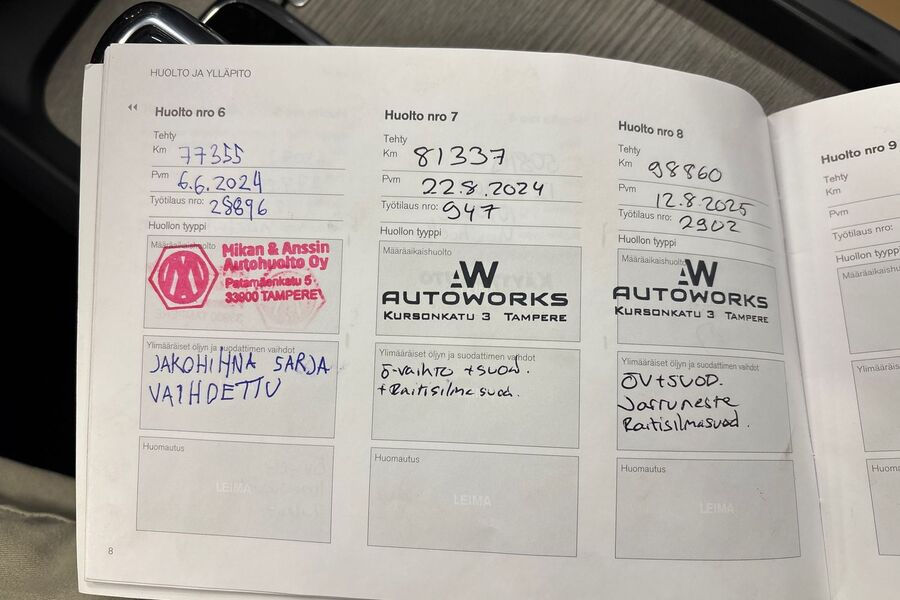 HUOLTO JA YLLÄPITO
Huolto nro 6
Tehty
Km 77355
Pvm 6.6.2024
Työtilaus nro: 28896
Huollon tyyppi
Määräaikaishuolto
Mikan & Anssin
Autohuolto Oy
Patamäenkatu 5
33900 TAMPERE
Ylimääräiset öljyn ja suodattimen vaihdot
JAKOHIHNA SARJA
VAIHDETTU
Huomautus
LEIMA
8
Huolto nro 7
Tehty
Km 81337
Pvm 22.8.2024
Työtilaus nro: 947
Huollon tyyppi
Määräaikaishuolto
AW
AUTOWORKS
KURSONKATU 3 TAMPERE
Ylimääräiset öljyn ja suodattimen vaihdot
ö-vaihto + suod.
+ Raitisilmasuod.
Huomautus
LEIMA
Huolto nro 8
Tehty
Km 98860
Pvm 12.8.2025
Työtilaus nro: 2902
Huollon tyyppi
Määräaikaishuolto
AW
AUTOWORKS
KURSONKATU 3 TAMPERE
Ylimääräiset öljyn ja suodattimen vaihdot
ÖV+SUOD.
Jarruneste
Raitisilmasuod.
Huomautus
LEIMA
Huolto nro 9
Tehty
Km
Pvm
Työtilaus nro:
Huollon tyyppi